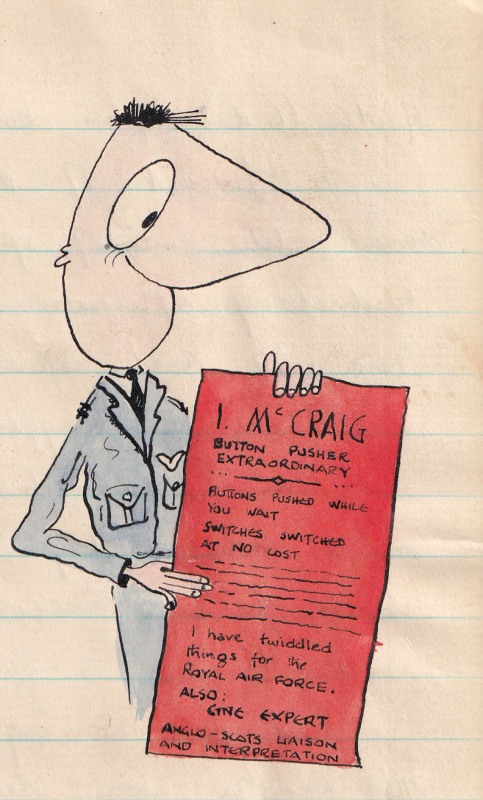 I. McCRAIG
BUTTON PUSHER
EXTRAORDINARY
BUTTONS PUSHED WHILE
YOU WAIT
SWITCHES SWITCHED
AT NO COST
I have twiddled
things for the
ROYAL AIR FORCE.
ALSO:
CINE EXPERT
ANGLO-SCOTS LIAISON
AND INTERPRETATION